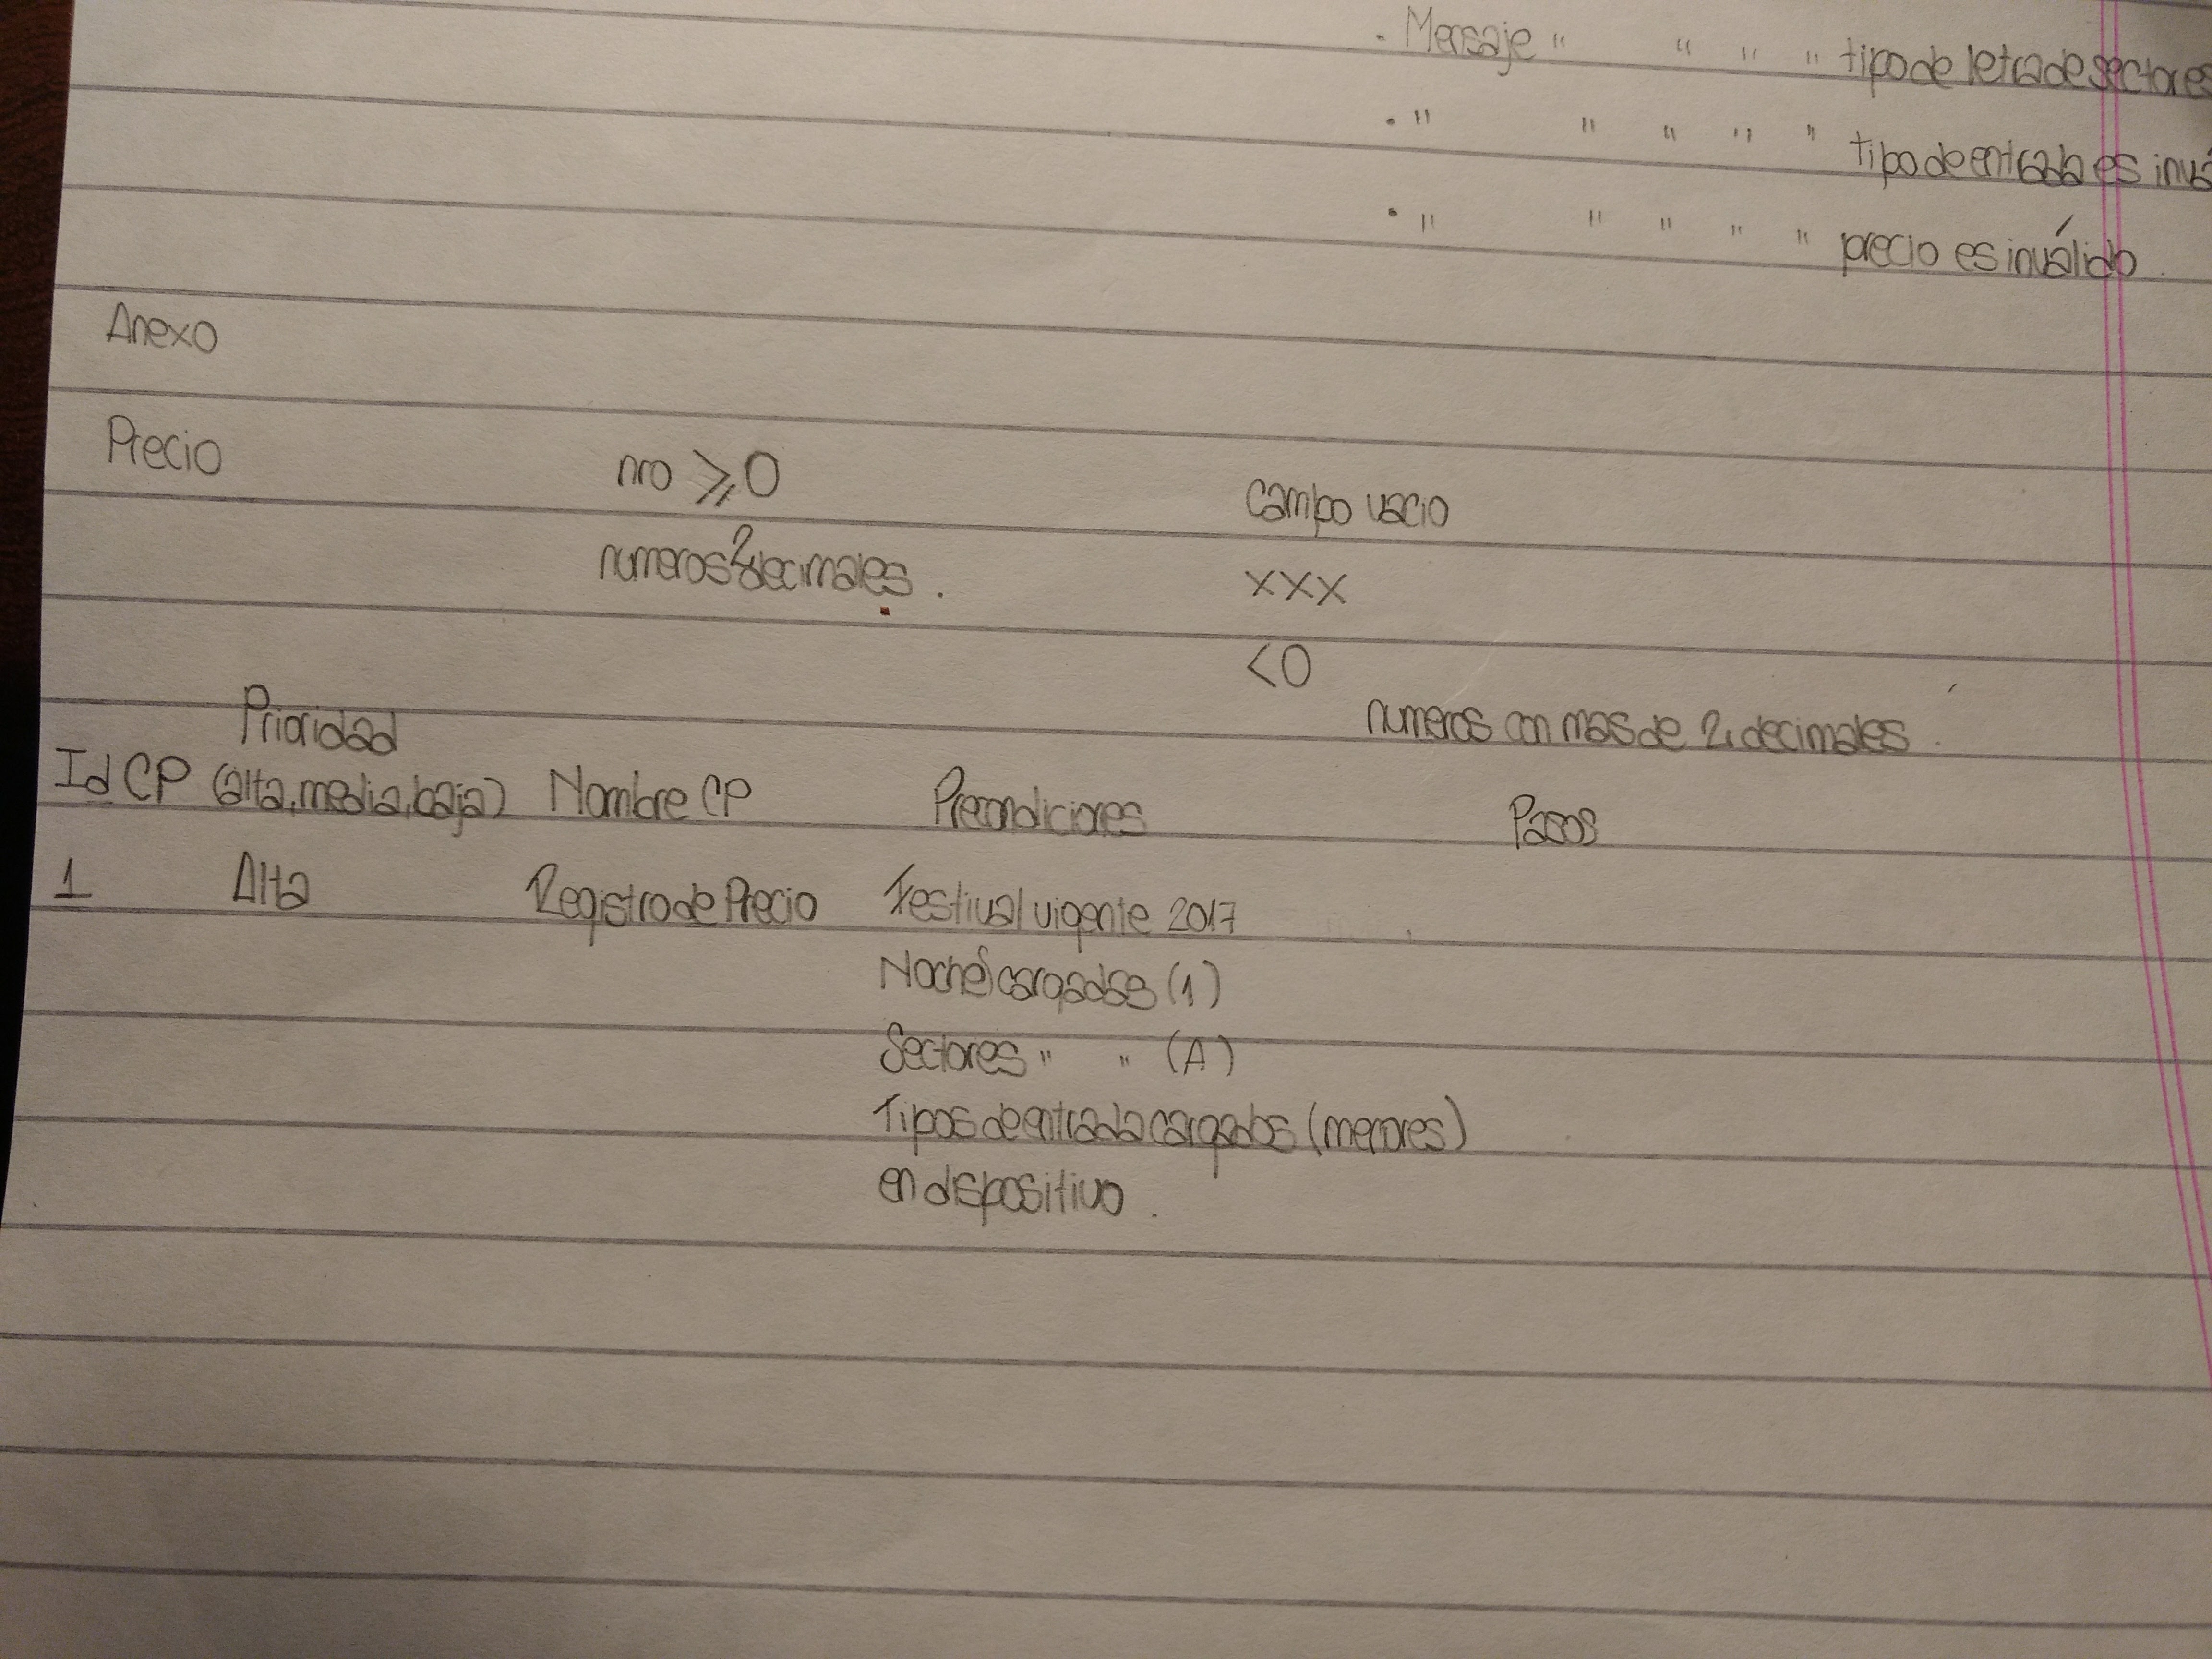 · Mensaje " " " " tipo de letra de sectores
· " " " " " tipo de entrada es invá
· " " " " " precio es inválido.
Anexo
Precio nro ⩾ 0 campo vacio
numeros 2 decimales. xxx
<0
numeros con mas de 2 decimales.
Prioridad
Id CP (alta, media, baja) Nombre CP Precondiciones Pasos
1 Alta Registro de Precio Festival vigente 2017
Noches cargadas (1)
Sectores " " (A)
Tipos de entrada cargados (menores)
en dispositivo.